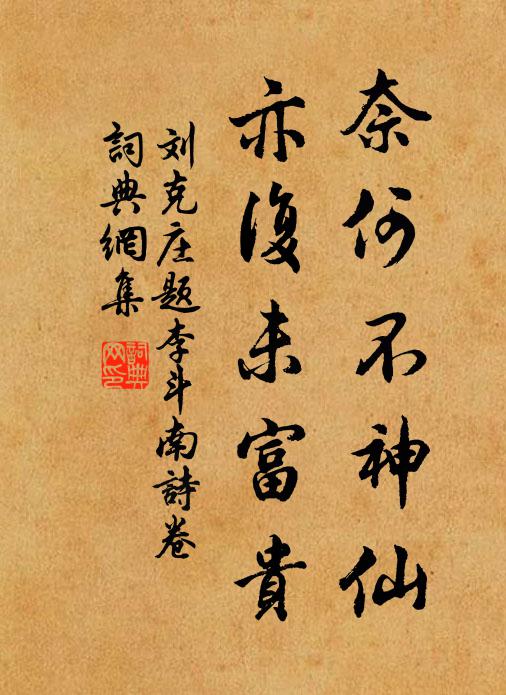 奈何不神仙
亦復未富貴
刘克庄題李斗南詩卷
詞典網集
詞典網印